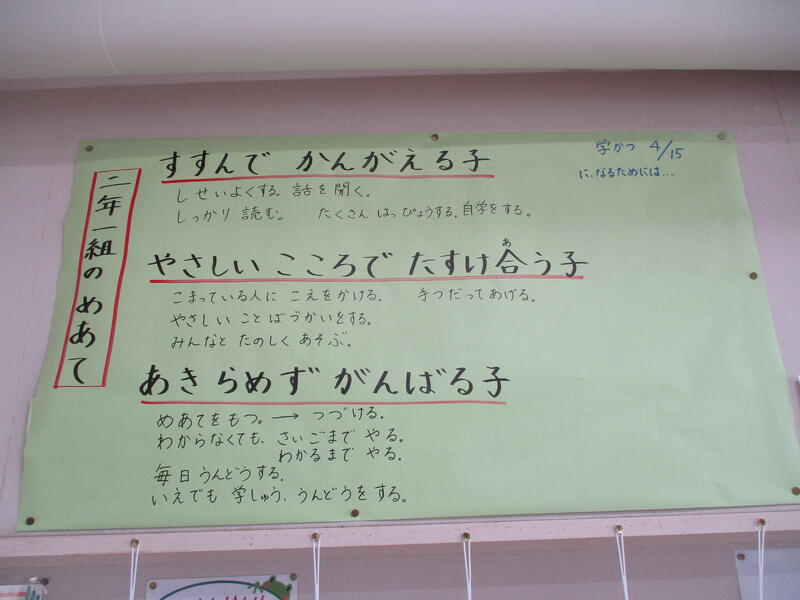 二年一組のめあて
学かつ 4/15
に、なるためには…
すすんで かんがえる子
しせいよくする。話を聞く。
しっかり 読む。 たくさん はっぴょうする。自学をする。
やさしい こころで たすけ合う子
あ
こまっている人に こえをかける。 手つだってあげる。
やさしい ことばづかいをする。
みんなと たのしく あそぶ。
あきらめず がんばる子
めあてをもつ。→ つづける。
わからなくても、さいごまで やる。
わかるまで やる。
毎日うんどうする。
いえでも 学しゅう、うんどうをする。